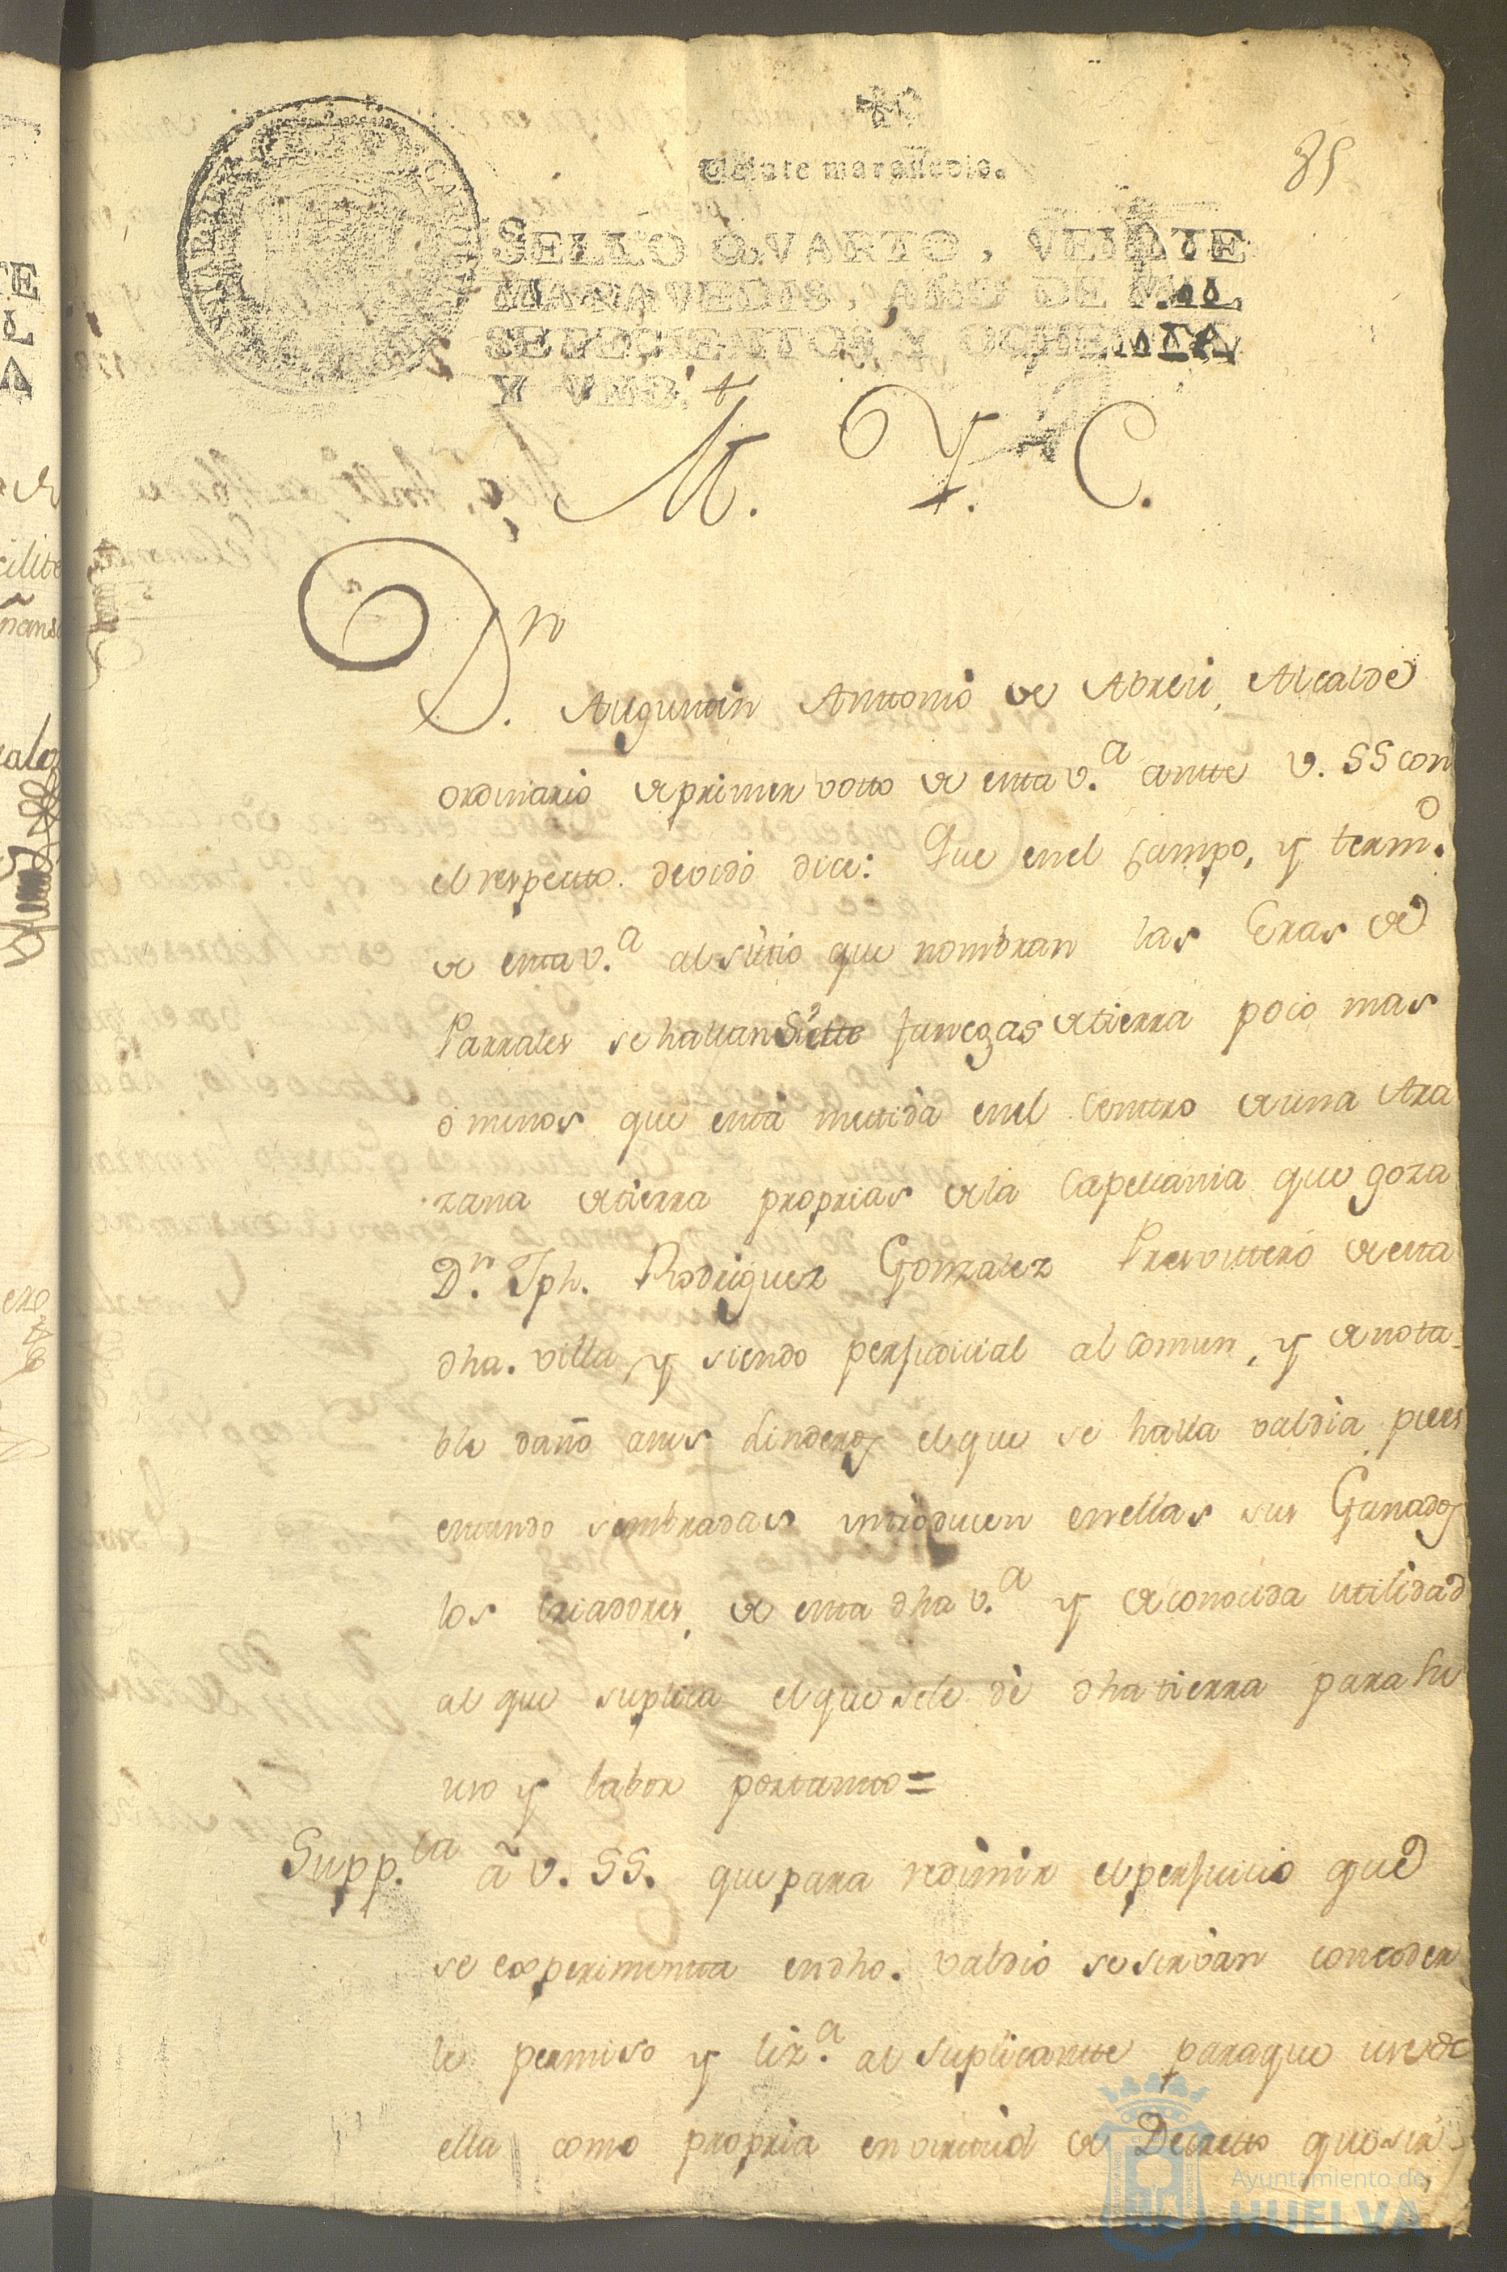 Veinte maravedis.
85
SELLO QVARTO, VEINTE
MARAVEDIS, AÑO DE MIL
SETECIENTOS Y OCHENTA
Y VNO.
M. Y. C.
Dn
D. Augustin Anttonio de Abreu, Alcalde
ordinario de primer votto de estta v.a antte V. SS con
el respectto devido dice: Que en el campo, y term.o
de estta v.a al sittio que nombran las Eras de
Parrales se hallan siette fanegas de tierra poco mas
ó menos que estta mettida en el Centtro de una Ara
zana de tierra proprias de la Capellania que goza
Dn. Jph. Rodriguez Gonzalez Presvittero de esta
dha. villa, y siendo perjudicial al comun, y de nota-
ble daño a mis Linderos el que se halla valdia pues
estando sembradas introducen en ellas sus Ganados
los Criadores, de estta dha v.a y de conocida utilidad
al que suplica el que se le dè dha tierra para su
uso y labor por tantto =
Supp.ca â V. SS. que para redimir el perjuicio que
se experimentta en dho. valdio se sirvan conceder
le permiso y liz.a al suplicantte para que use de
ella como propria en virtud de Decretto que sir-
Ayuntamiento de
HUELVA